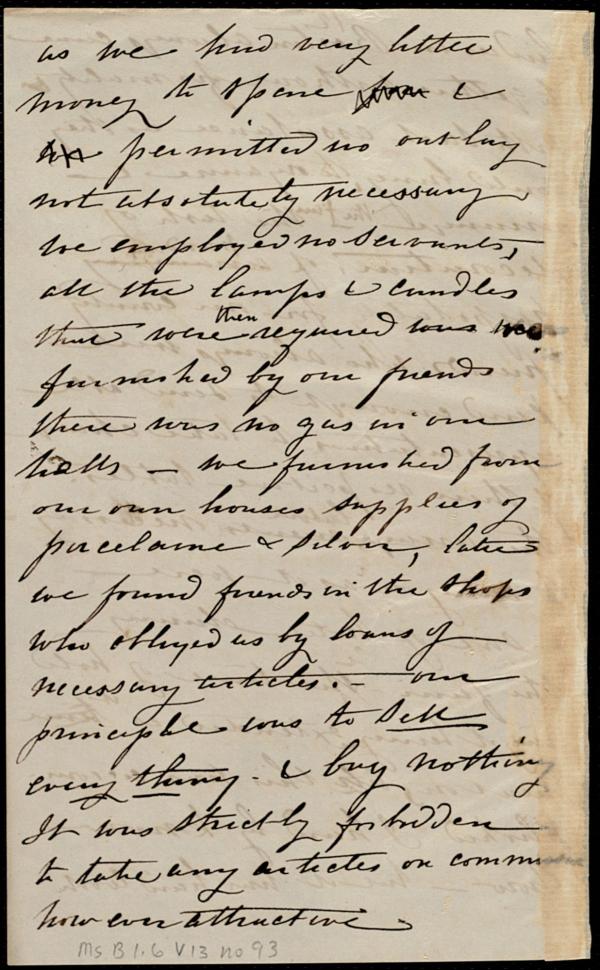 as we had very little
money to spare &
permitted no out lay
not absolutely necessary
we employed no servants,
all the lamps & candles
then
that were required was
furnished by our friends
there was no gas in our
halls – we furnished from
our own houses supplies of
porcelaine & silver, later
we found friends in the shops
who obliged us by loans of
necessary articles. – our
principle was to sell
every thing. & buy nothing
It was strictly forbidden
to take any articles on commi
how ever attractive
Ms B 1.6 V 13 no 93